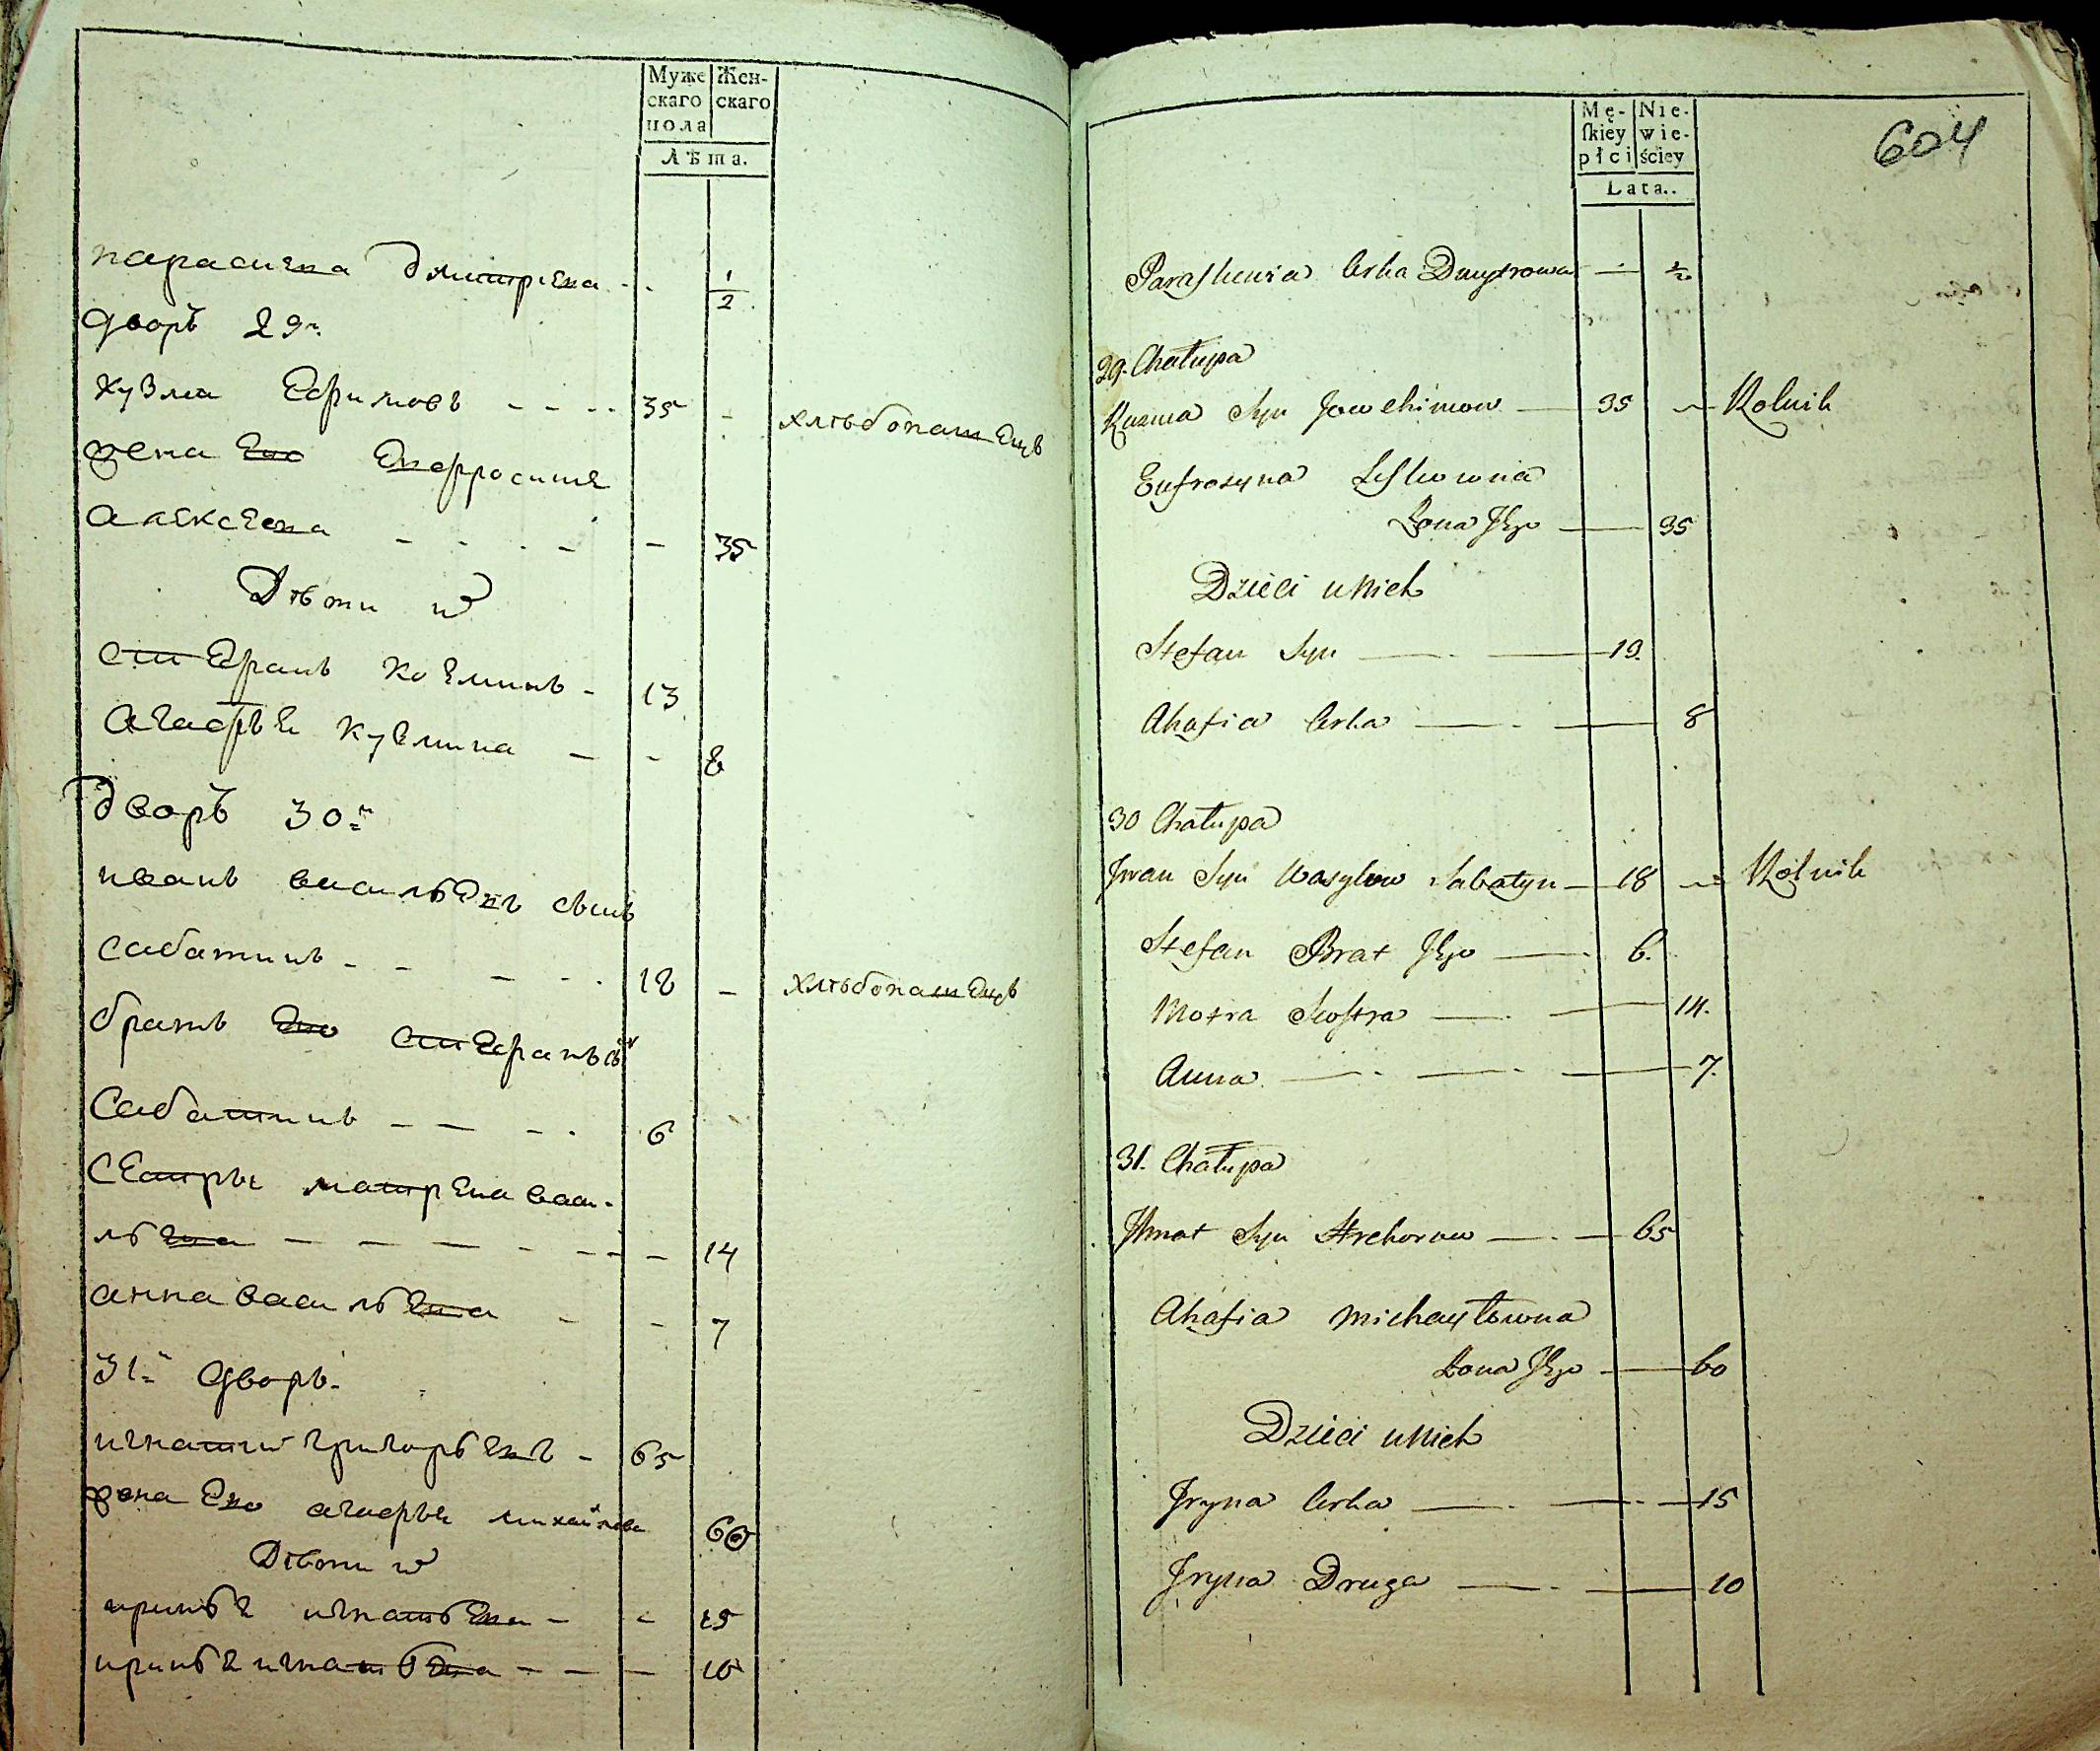 Муже
скаго
пола
Жен-
скаго
Лѣта.
парасичка дмитриева - - 1/2
дворъ 29й
кузма Ефимовъ - - - - 35 - хлѣбопашецъ
жена Его Евфросинія
алексѣева - - - - - 35
Дѣти ихъ
стЕфанъ козминъ - 13
агафія кузмина - - 8
дворъ 30й
иванъ васильЕвъ сынъ
сабатинъ - - - - - 18 - хлѣбопашЕцъ
братъ Его СтЕфанъ
Сабатинъ - - - - 6
СЕстры матрЕна васи-
льЕва - - - - - - - 14
анна васильЕва - - 7
31й дворъ.
игнатий григорьЕвъ - 65
жена Его агафья михайлова 60
Дѣти ихъ
ириня игнатьЕва - - 15
ириня игнатьЕва - - - 10
Mę-
ſkiey
płci
Nie-
wie-
ściey
Lata..
604
Paraſkewia Corka Dmytrowa — 1/2
29. Chałupa
Kuzma Syn Jowchimow — 35 — Rolnik
Eufrozyna
Zona Jego — 35
Dzieci u Nich
Stefan Syn — 13.
Ahafia Corka — 8
30 Chałupa
Jwan Syn Wasylow Sabatyn — 18 — Rolnik
Stefan Brat Jego — 6.
Motra Sioſtra — 14.
Anna — 7.
31. Chałupa
Jhnat Syn Hrehorow — 65
Ahafia Michayłowna
Zona Jego — 60
Dzieci u Nich
Jryna Corka — 15
Jryna Druga — 10